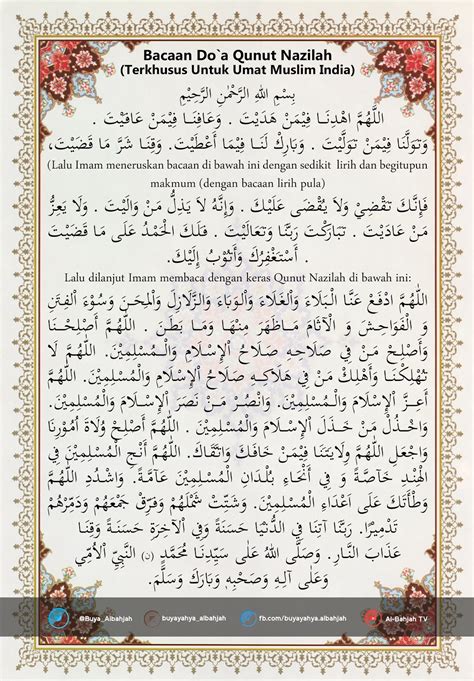 Bacaan Do`a Qunut Nazilah
(Terkhusus Untuk Umat Muslim India)
بِسْمِ اللهِ الرَّحْمٰنِ الرَّحِيْمِ
اَللّٰهُمَّ اهْدِنَـا فِيْمَنْ هَدَيْتَ . وَعَافِنَـا فِيْمَنْ عَافَيْتَ .
وَتَوَلَّنَا فِيْمَنْ تَوَلَّيْتَ . وَبَارِكْ لَنَا فِيْمَا أَعْطَيْتَ. وَقِنَا شَرَّ مَا قَضَيْتَ،
(Lalu Imam meneruskan bacaan di bawah ini dengan sedikit lirih dan begitupun
makmum (dengan bacaan lirih pula)
فَإِنَّكَ تَقْضِيْ وَلَا يُقْضَى عَلَيْكَ . وَإِنَّهُ لَا يَذِلُّ مَنْ وَالَيْتَ . وَلَا يَعِزُّ
مَنْ عَادَيْتَ . تَبَارَكْتَ رَبَّنَا وَتَعَالَيْتَ . فَلَكَ الْحَمْدُ عَلَى مَا قَضَيْتَ
. أَسْتَغْفِرُكَ وَأَتُوْبُ إِلَيْكَ.
Lalu dilanjut Imam membaca dengan keras Qunut Nazilah di bawah ini:
اَللّٰهُمَّ ادْفَعْ عَنَّا الْبَلَاءَ وَالْغَلَاءَ وَالْوَبَاءَ وَالزَّلَازِلَ وَالْمِحَنَ وَسُوْءَ الْفِتَنِ
وَ الْفَوَاحِشَ وَ الْآثَامَ مَـاظَهَرَ مِنْهَا وَمَا بَطَنَ . اَللّٰهُمَّ أَصْلِحْنَا
وَأَصْلِحْ مَنْ فِيْ صَلَاحِهِ صَلَاحُ الْإِسْلَامِ وَالْـمُسْلِمِيْنَ. اَللّٰهُمَّ لَا
تُهْلِكْنَا وَأَهْلِكْ مَنْ فِيْ هَلَاكِهِ صَلَاحُ الْإِسْلَامِ وَالْمُسْلِمِيْنَ. اَللّٰهُمَّ
أَعِزَّ الْإِسْلَامَ وَالْمُسْلِمِيْنَ. وَانْصُرْ مَنْ نَصَرَ الْإِسْلَامَ وَالْمُسْلِمِيْنَ.
وَاخْذُلْ مَنْ خَذَلَ الْإِسْلَامَ وَالْمُسْلِمِيْنَ . اَللّٰهُمَّ أَصْلِحْ وُلَاةَ أُمُوْرِنَا
وَاجْعَلِ اللّٰهُمَّ وِلَايَتَنَا فِيْمَنْ خَافَكَ وَاتَّقَاكَ. اَللّٰهُمَّ أَنْجِ الْمُسْلِمِيْنَ فِي
الْهِنْدِ خَاصَّةً وَ فِيْ أَنْحَاءِ بُلْدَانِ الْمُسْلِمِيْنَ عَآمَّةً. وَاشْدُدِ اللّٰهُمَّ
وَطْأَتَكَ عَلَى أَعْدَاءِ الْمُسْلِمِيْنَ. وَشَتِّتْ شَمْلَهُمْ وَفَرِّقْ جَمْعَهُمْ وَدَمِّرْهُمْ
تَدْمِيْرًا. رَبَّنَا آتِنَا فِي الدُّنْيَا حَسَنَةً وَفِي الْآخِرَةِ حَسَنَةً وَقِنَا
عَذَابَ النَّارِ. وَصَلَّى اللهُ عَلَى سَيِّدِنَا مُحَمَّدٍ (نِ) النَّبِيِّ الْأُمِّيِّ
وَعَلَى آلِهِ وَصَحْبِهِ وَبَارَكَ وَسَلَّمَ.
@Buya_Albahjah buyayahya_albahjah fb.com/buyayahya.albahjah Al-Bahjah TV